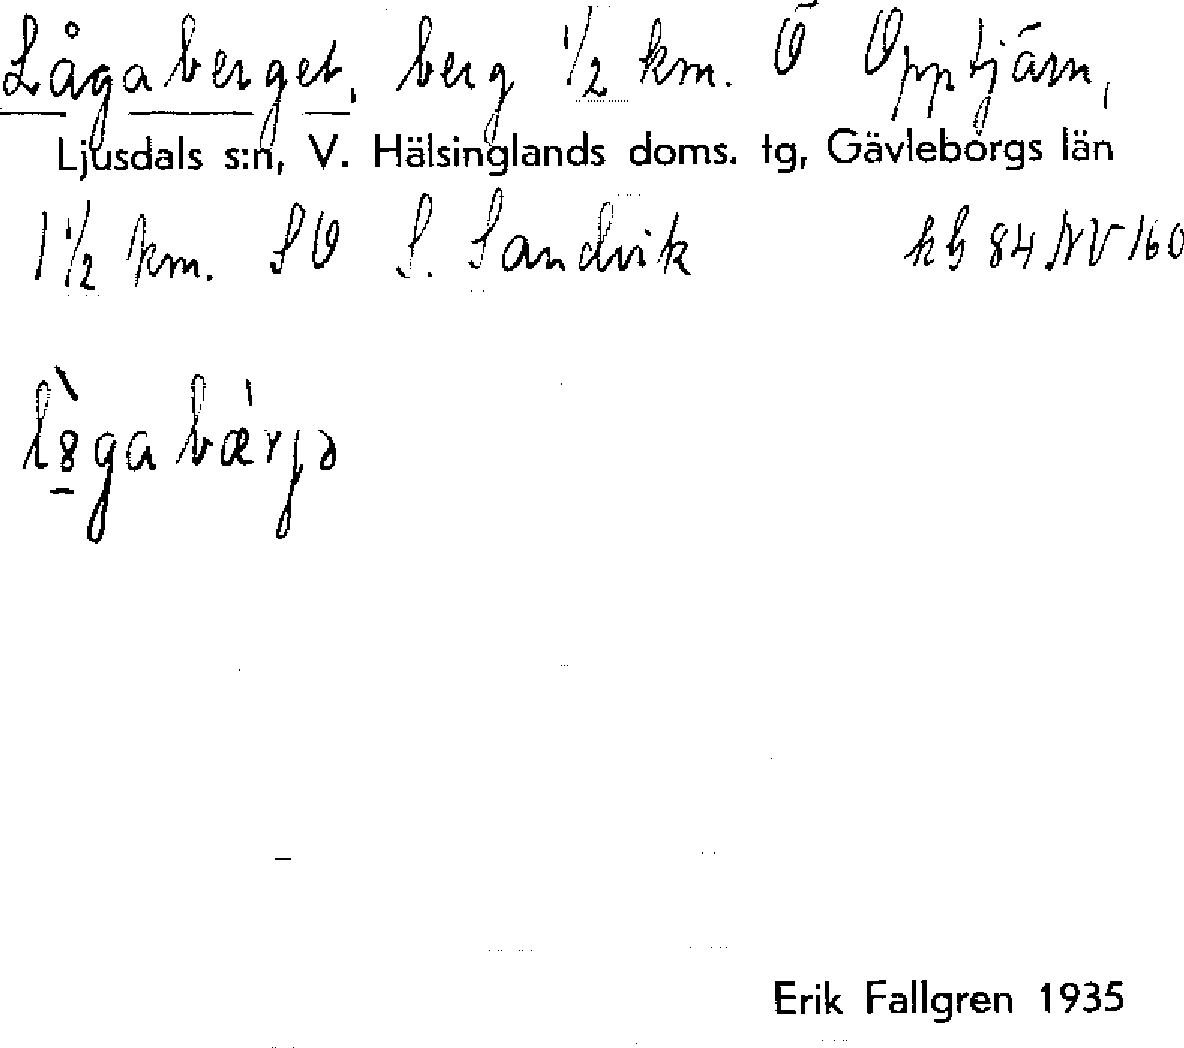 Lågaberget, berg 1/2 km. Ö Opptjärn,
Ljusdals s:n, V. Hälsinglands doms. tg, Gävleborgs län
1 1/2 km. SO S. Sandvik kb 84 NV 160
l8̲̀gabæ̍rjə
Erik Fallgren 1935